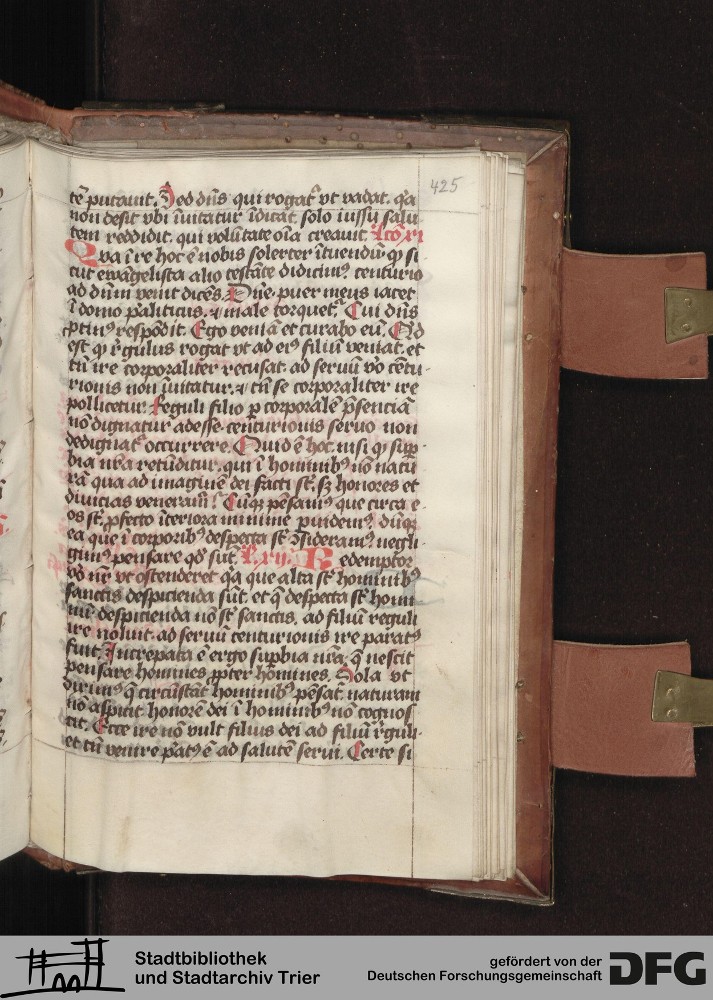 425
tē putauit. Sed dn̄s qui rogatͬ vt vadat. q̄a
non desit vbi īuitatur īdicat. solo iussu salu
tem reddidit. qui volūtate oīa creauit. Lcō xi
Qva ī re hoc ē nobis solerter ītuendū ꝙ si
cut ewāgelista alio testāte didicimꝰ centurio
ad dūm venit dicēs. Dn̄e puer meus iacet
ī domo paliticus. ⁊ male torquetͬ. Cui dn̄s
ꝓtinꝰ respōdit. Ego veniā et curabo eū. Qͥd
est ꝙ rͥgulus rogat vt ad eiꝰ filiū veniat. et
tn̄ ire corporaliter recusat. ad seruū vͦo cētu
rionis non īuitatur. ⁊ tn̄ se corporaliter ire
pollicetur. Reguli filio ꝑ corporalē p̄senciā
nō dignatur adesse. centurionis seruo non
dedignatͬ occurrere. Quid ē hoc. nisi ꝙ suꝑ
bia nr̄a retūditur. qui ī hominibꝰ nō natu
rā qua ad imaginē dei facti st̄. sꝫ honores et
diuicias veneramͬ. Cūqꝫ pēsamꝰ que circa e
os st̄. ꝓfecto īteriora minime ꝑuidemꝰ. dūqꝫ
ea que ī corporibꝰ despecta st̄ ꝯsideramꝰ. negli
gimꝰ pensare qd̄ sūt. L. xij. Redemptor
vͦo nr̄ vt ostenderet q̄a que alta st̄ hominibꝰ
sanctis despicienda sūt. et q̄ despecta st̄ homi
nibꝰ despicienda nō st̄ sanctis. ad filiū reguli
ire noluit. ad seruū centurionis ire paratꝰ
fuit. Increpata ē ergo suꝑbia nr̄a. q̄ nescit
pensare homines ꝓpter homines. Sola vt
dixīmꝰ q̄ circūstāt hominibꝰ pēsat. naturam
nō aspicit. honorē dei ī hominibꝰ nō cognos
cit. Ecce ire nō vult filius dei ad filiū rͥguli.
et tn̄ venire ꝑatꝰ ē ad salutē serui. Certe si
Stadtbibliothek
und Stadtarchiv Trier
gefördert von der
Deutschen Forschungsgemeinschaft
DFG